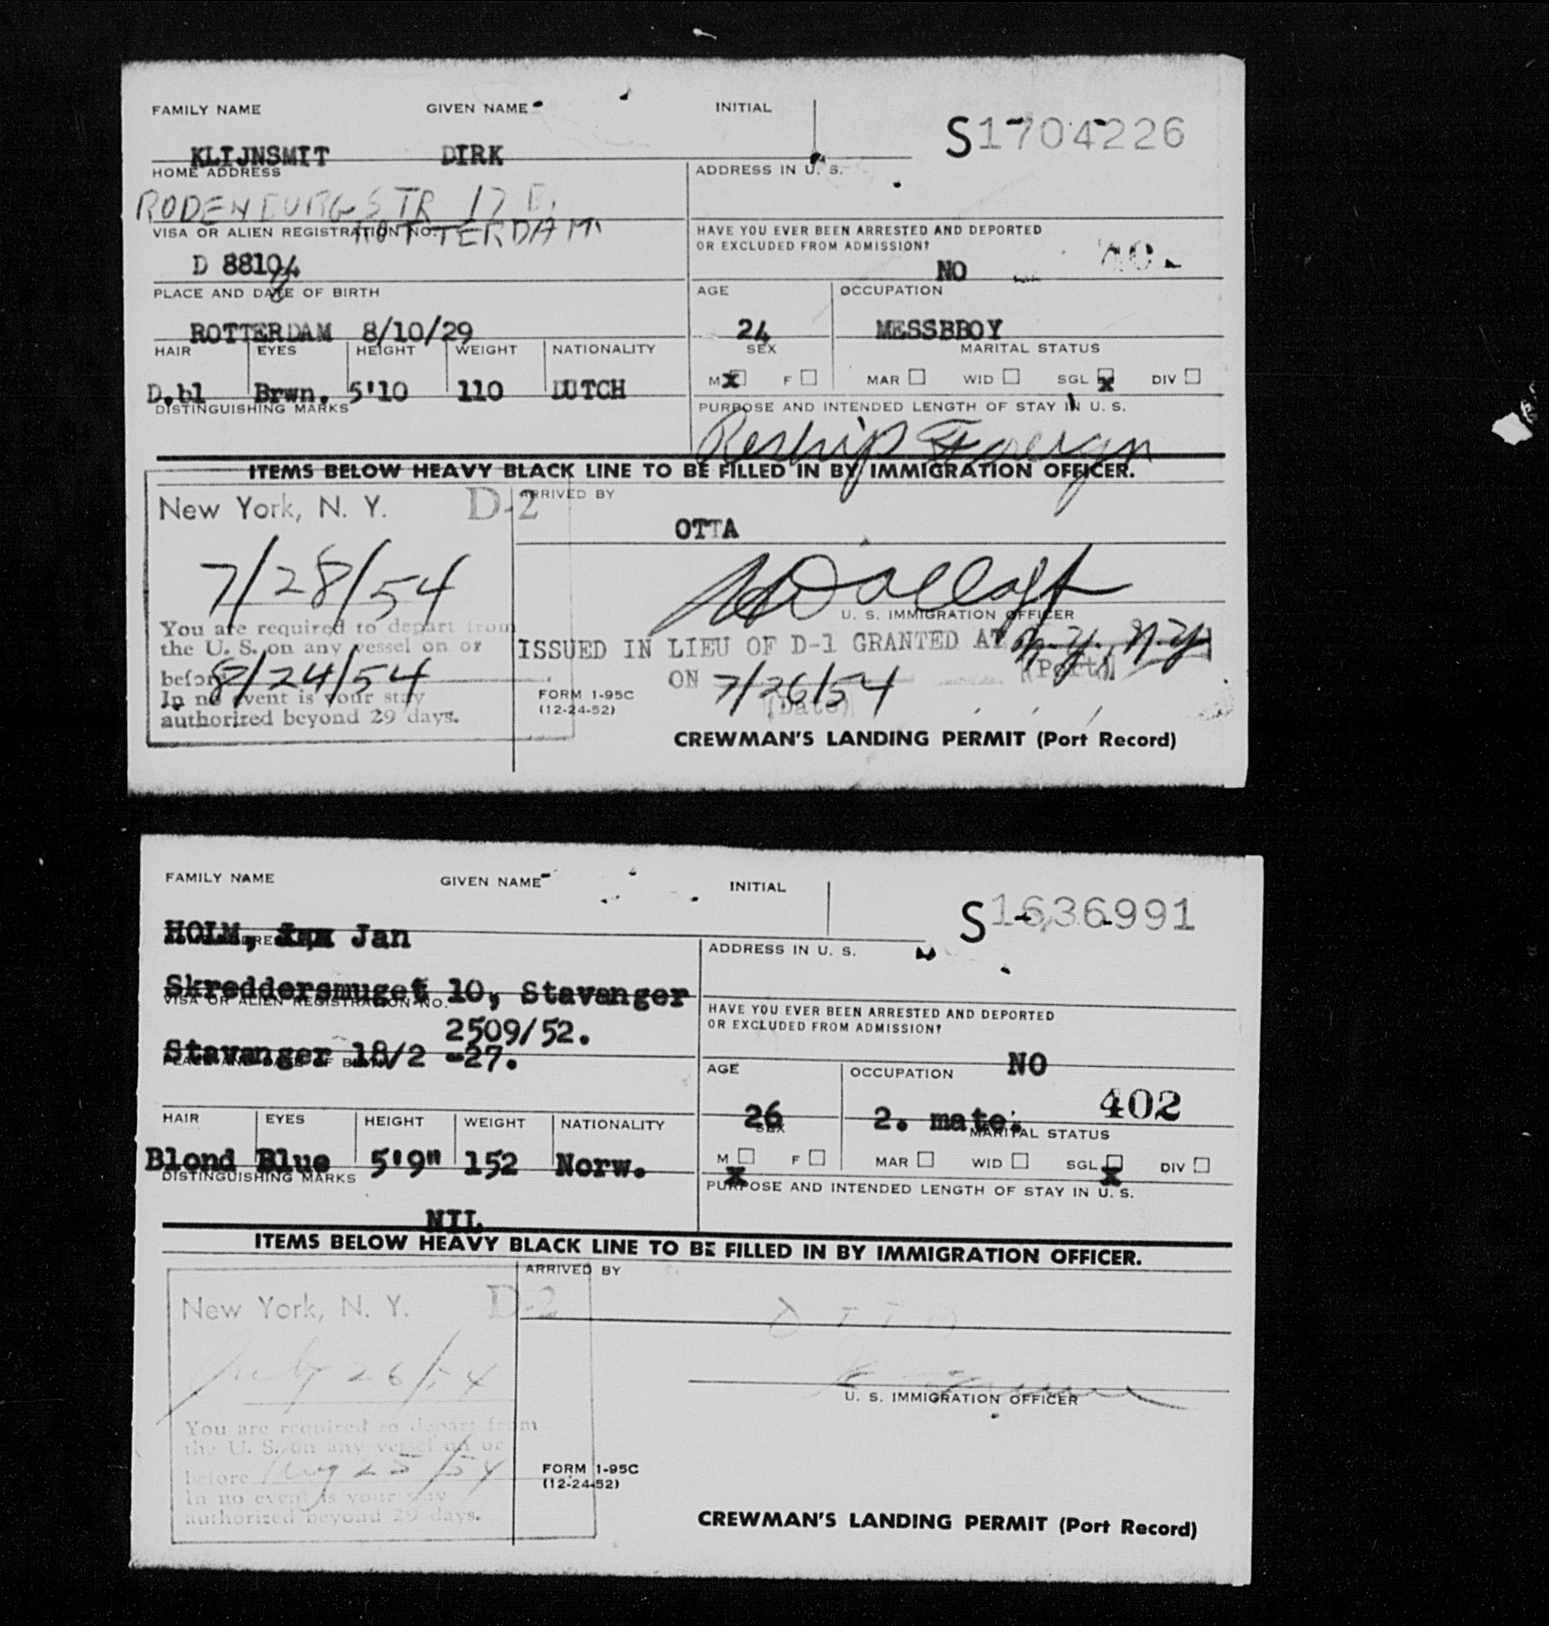 FAMILY NAME GIVEN NAME INITIAL
S1704226
KLIJNSMIT DIRK
HOME ADDRESS ADDRESS IN U. S.
RODENBURGSTR 17 B.
ROTTERDAM
VISA OR ALIEN REGISTRATION NO. HAVE YOU EVER BEEN ARRESTED AND DEPORTED
OR EXCLUDED FROM ADMISSION?
D 88104 NO NO.
PLACE AND DATE OF BIRTH AGE OCCUPATION
ROTTERDAM 8/10/29 24 MESSBBOY
HAIR EYES HEIGHT WEIGHT NATIONALITY SEX MARITAL STATUS
M X F MAR WID SGL X DIV
D.bl Brwn. 5'10 110 DUTCH
DISTINGUISHING MARKS PURPOSE AND INTENDED LENGTH OF STAY IN U. S.
Reship Foreign
ITEMS BELOW HEAVY BLACK LINE TO BE FILLED IN BY IMMIGRATION OFFICER.
New York, N. Y. D-2 ARRIVED BY
OTTA
7/28/54
U. S. IMMIGRATION OFFICER
You are required to depart from
the U. S. on any vessel on or
before 8/24/54
In no event is your stay
authorized beyond 29 days.
ISSUED IN LIEU OF D-1 GRANTED AT N.Y., N.Y.
(Port)
ON 7/26/54
(Date)
FORM I-95C
(12-24-52)
CREWMAN'S LANDING PERMIT (Port Record)
FAMILY NAME GIVEN NAME INITIAL
S1636991
HOLM, Jan
ADDRESS IN U. S.
Skreddersmuget 10, Stavanger
VISA OR ALIEN REGISTRATION NO. HAVE YOU EVER BEEN ARRESTED AND DEPORTED
OR EXCLUDED FROM ADMISSION?
2509/52.
Stavanger 18/2 -27. NO
PLACE AND DATE OF BIRTH AGE OCCUPATION
402
26 2. mate.
HAIR EYES HEIGHT WEIGHT NATIONALITY SEX MARITAL STATUS
M X F MAR WID SGL X DIV
Blond Blue 5'9" 152 Norw.
DISTINGUISHING MARKS PURPOSE AND INTENDED LENGTH OF STAY IN U. S.
NIL
ITEMS BELOW HEAVY BLACK LINE TO BE FILLED IN BY IMMIGRATION OFFICER.
New York, N. Y. D-2 ARRIVED BY
OTTA
July 26/54
U. S. IMMIGRATION OFFICER
You are required to depart from
the U. S. on any vessel on or
before Aug 25/54
In no event is your stay
authorized beyond 29 days.
FORM I-95C
(12-24-52)
CREWMAN'S LANDING PERMIT (Port Record)